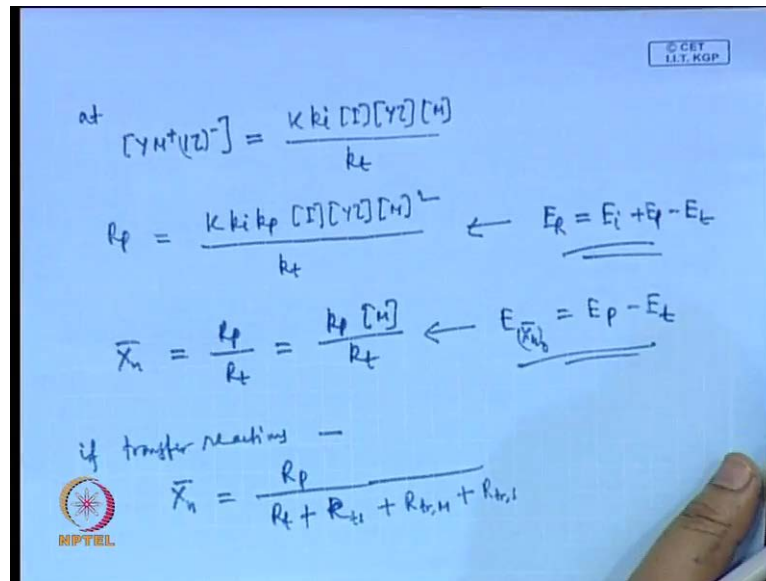 © CET
I.I.T. KGP
at
[YM⁺(IZ)⁻] = K ki [I][YZ][M] / kt
Rp = K ki kp [I][YZ][M]² / kt ← E_R = Ei + Ep - Et
X̄n = Rp / Rt = kp [M] / kt ← E(X̄n)₀ = Ep - Et
if transfer reactions —
X̄n = Rp / Rt + Rts + Rtr,M + Rtr,S
NPTEL